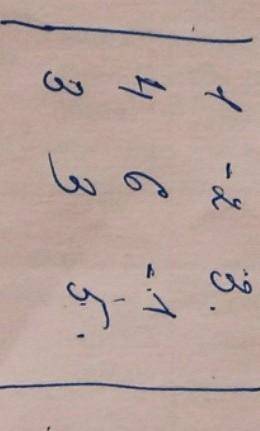 1 -2 3.
4 6 -1
3 3 5.